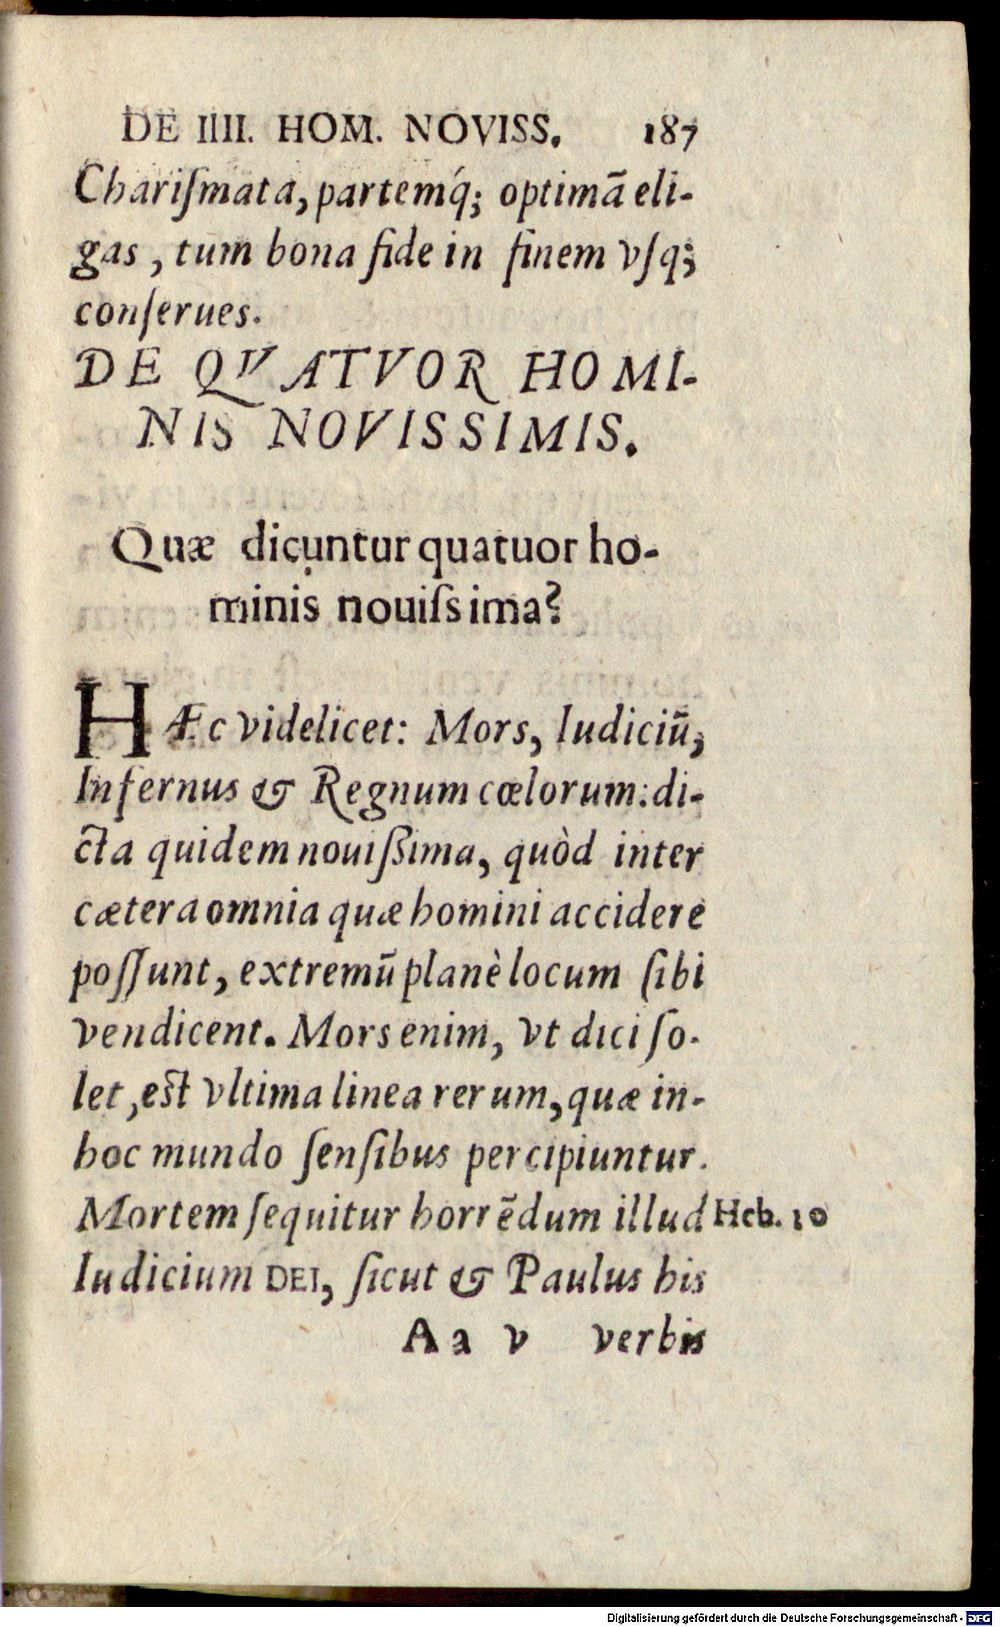 DE IIII. HOM. NOVISS. 187
Chariſmata, partemq́; optimā eli-
gas, tum bona fide in finem vſq;
conſerues.
DE QVATVOR HOMI-
NIS NOVISSIMIS.
Quæ dicuntur quatuor ho-
minis nouiſsima?
HÆc videlicet: Mors, Iudiciū,
Infernus & Regnum cœlorum: di-
cta quidem nouiſsima, quòd inter
cætera omnia quæ homini accidere
poſſunt, extremū planè locum ſibi
vendicent. Mors enim, vt dici ſo-
let, eſt vltima linea rerum, quæ in-
hoc mundo ſenſibus percipiuntur.
Mortem ſequitur horrēdum illud Heb. 10
Iudicium DEI, ſicut & Paulus his
Aa v verbis
Digitalisierung gefördert durch die Deutsche Forschungsgemeinschaft - DFG